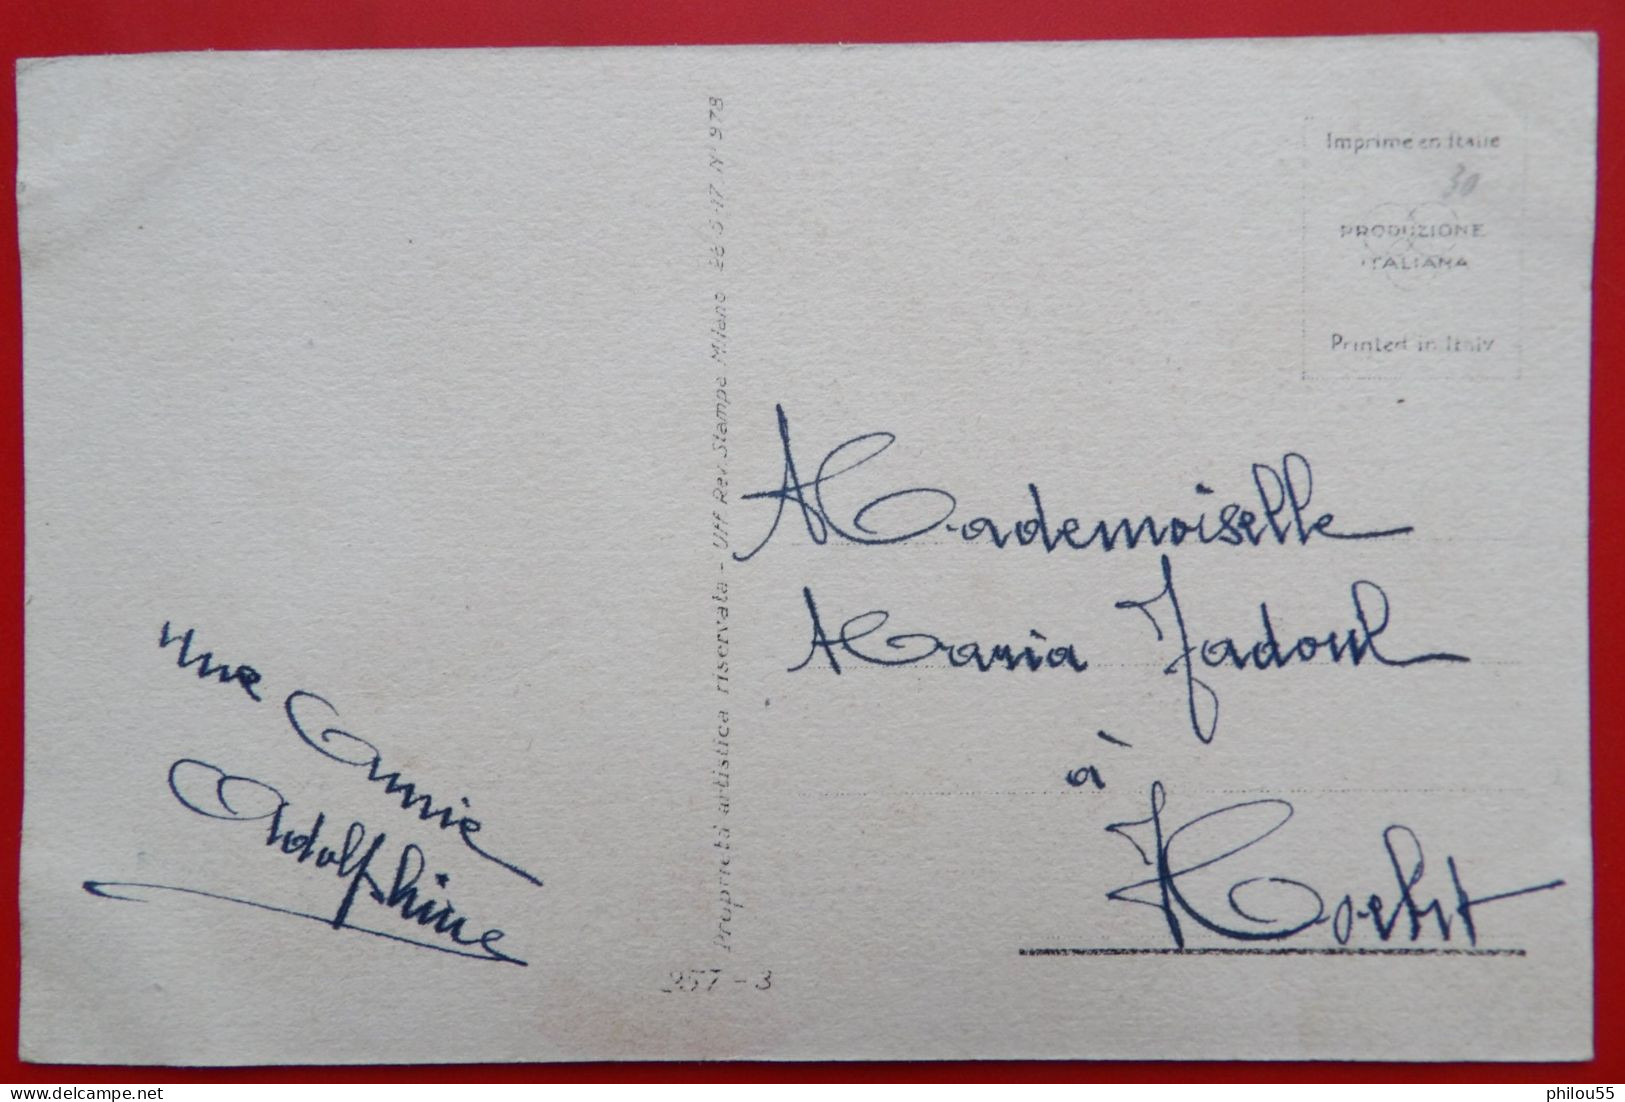 Une Amie
Adolphine
Proprietà artistica riservata - Uff. Rev. Stampa Milano 26-5-17 N° 978
957 - 3
Imprime en Italie
30
PRODUZIONE
ITALIANA
Printed in Italy
Mademoiselle
Maria Jadoul
à
delcampe.net
philou55